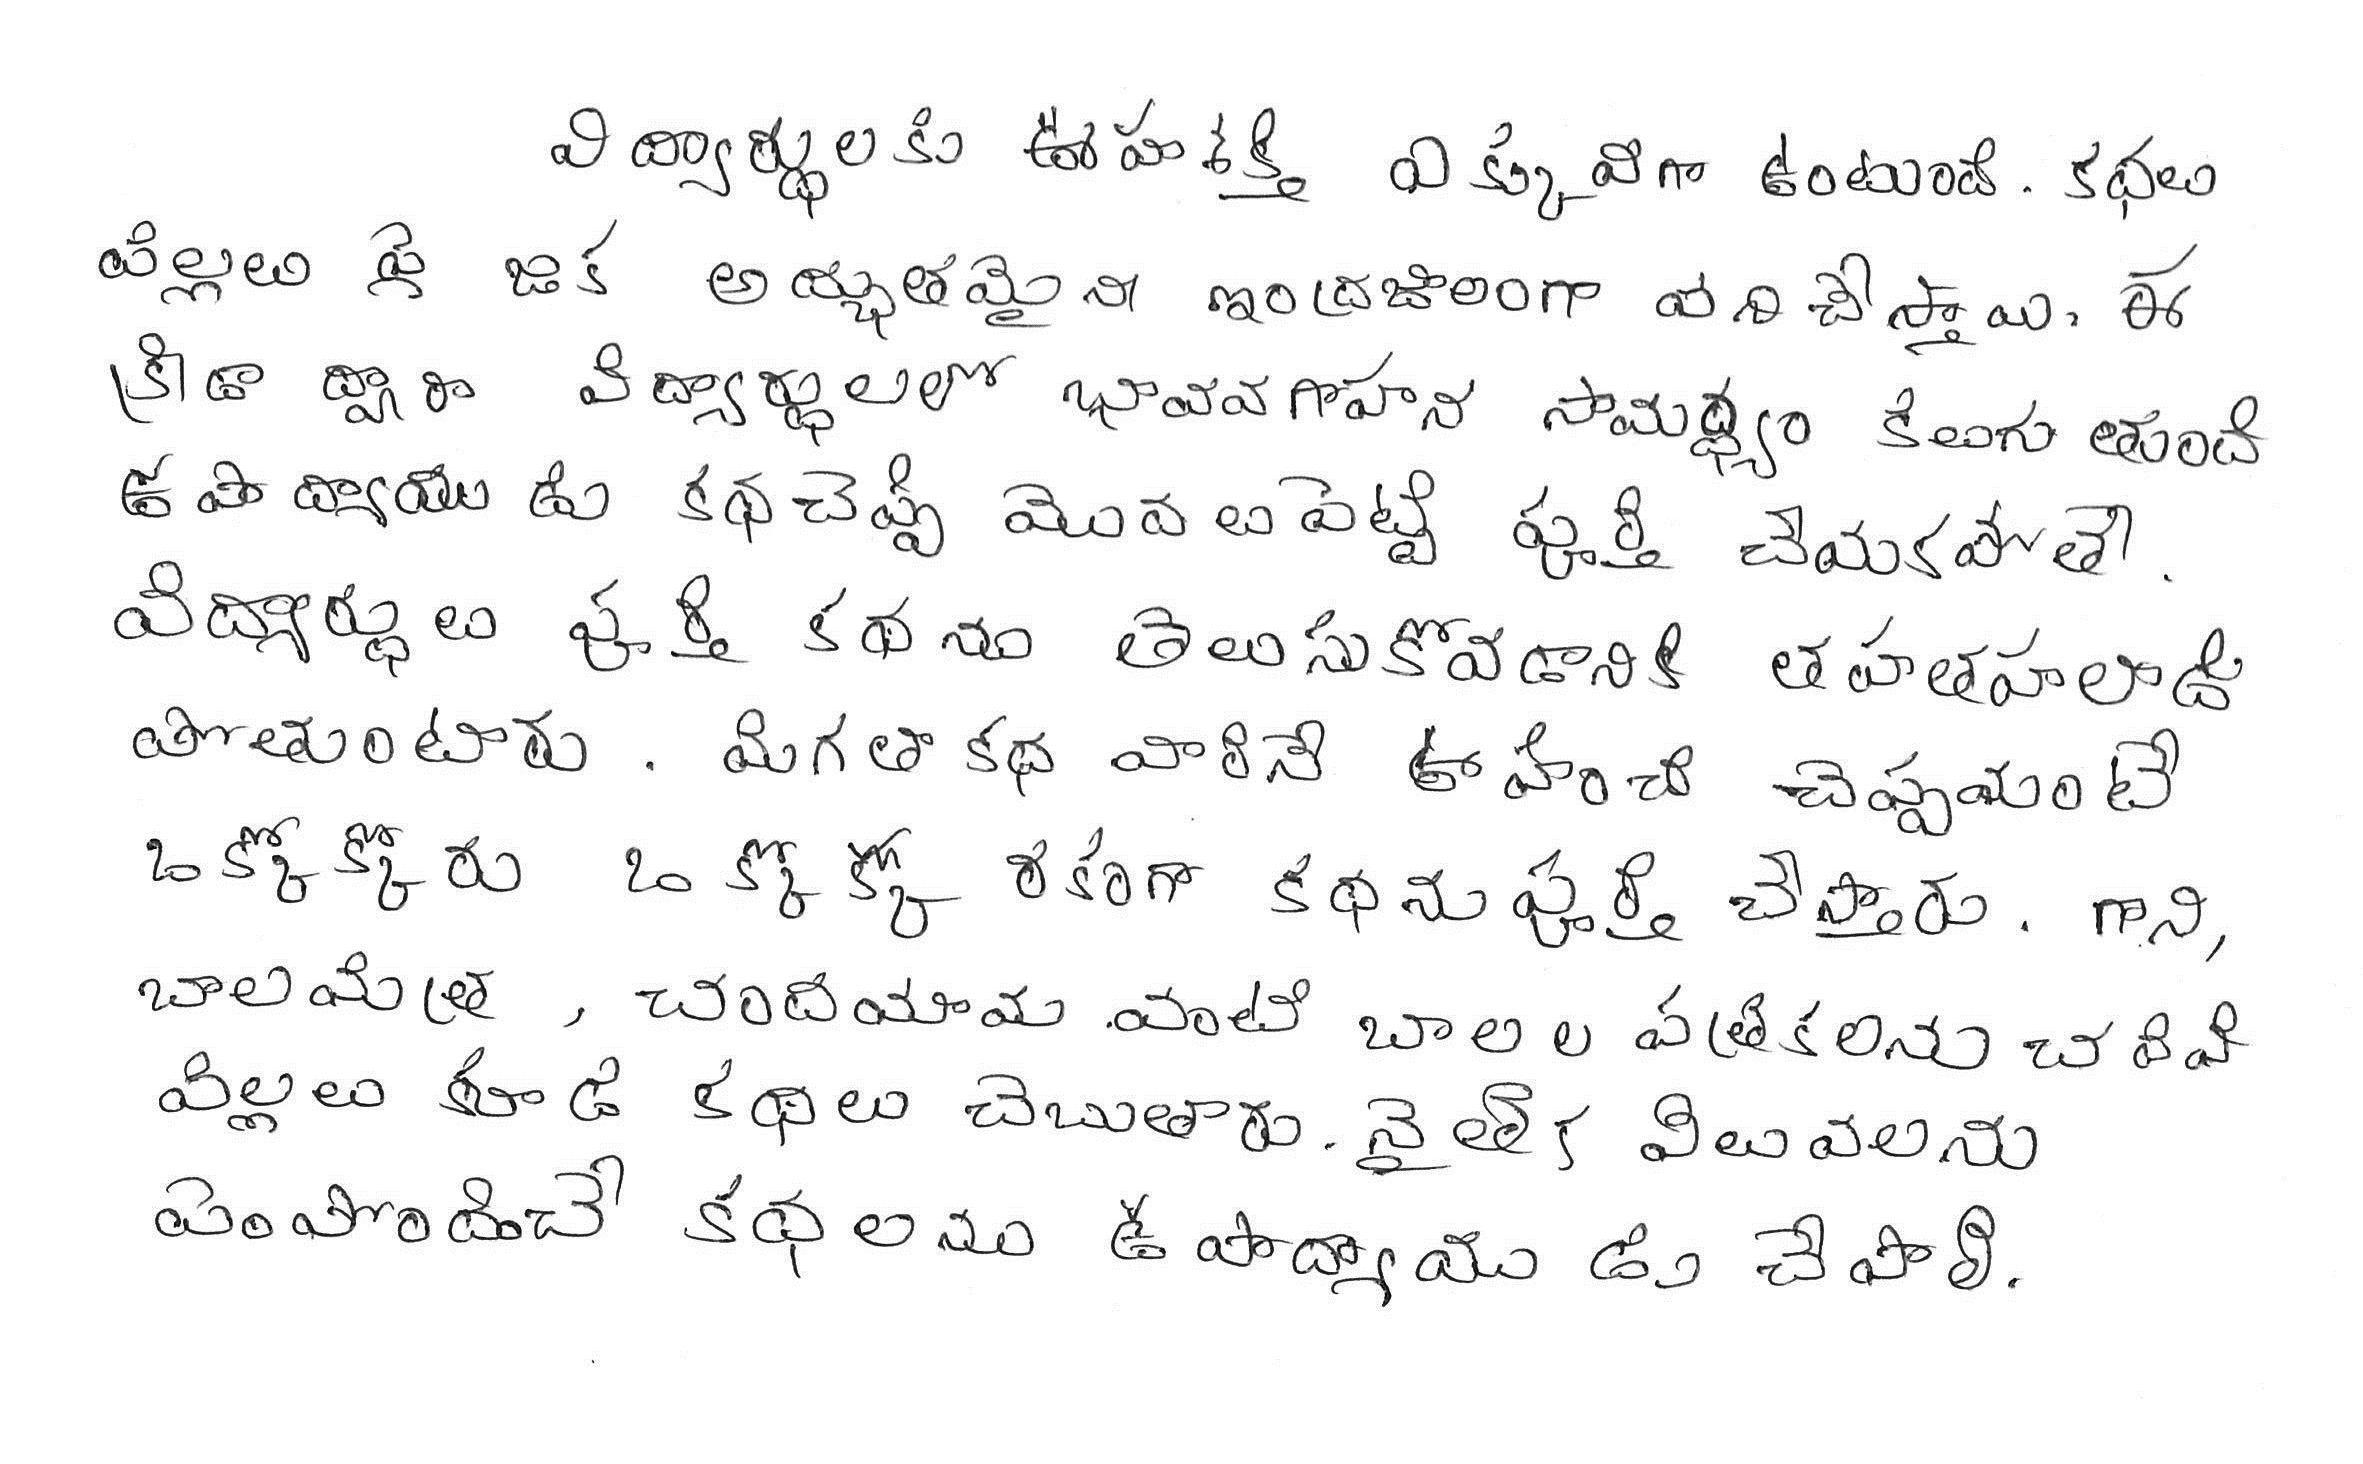 విద్యార్థులకు ఊహశక్తి ఎక్కువగా ఉంటుంది. కథలు
పిల్లలు పై ఒక అద్భుతమైన ఇంద్రజాలంగా పనిచేస్తాయి. ఈ
క్రీడా ద్వారా విద్యార్థులలో భావవగాహన సామర్థ్యం కలుగుతుంది
ఉపాధ్యాయుడు కథచెప్పి మొదలుపెట్టి పూర్తి చేయకపోతే.
విద్యార్థులు పూర్తి కథను తెలుసుకోవడానికి తహతహలాడి
పోతుంటారు. మిగతాకథ వారినే ఊహించి చెప్పమంటే
ఒక్కోక్కోరు ఒక్కోక్కో రకంగా కథను పూర్తి చేస్తారు. గాని,
బాలమిత్ర, చందమామ వంటి బాలల పత్రికలను చదివి
పిల్లలు కూడ కథలు చెబుతారు. నైతిక విలువలను
పెంపొందించే కథలను ఉపాధ్యాయుడు చేపాలి.